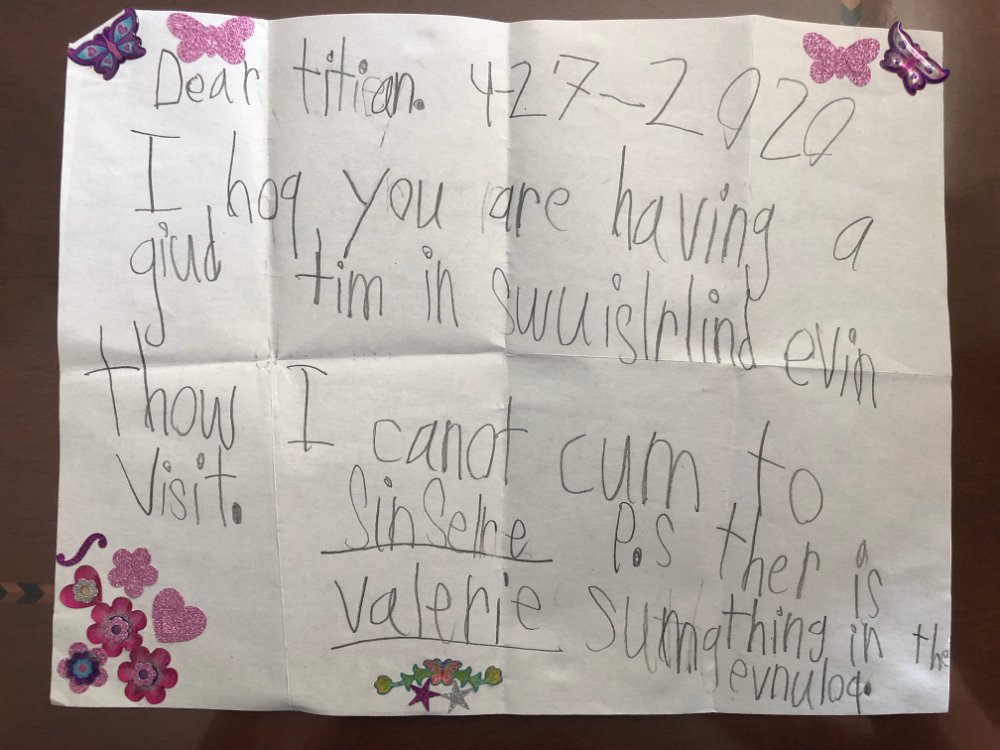 Dear titian. 4-27-2020
I hop you are having a
giud tim in swuislrlind evin
thow I canot cum to
visit.
Sinselre
Valerie
P.S ther is
a
sumgthing in the
evnulop.